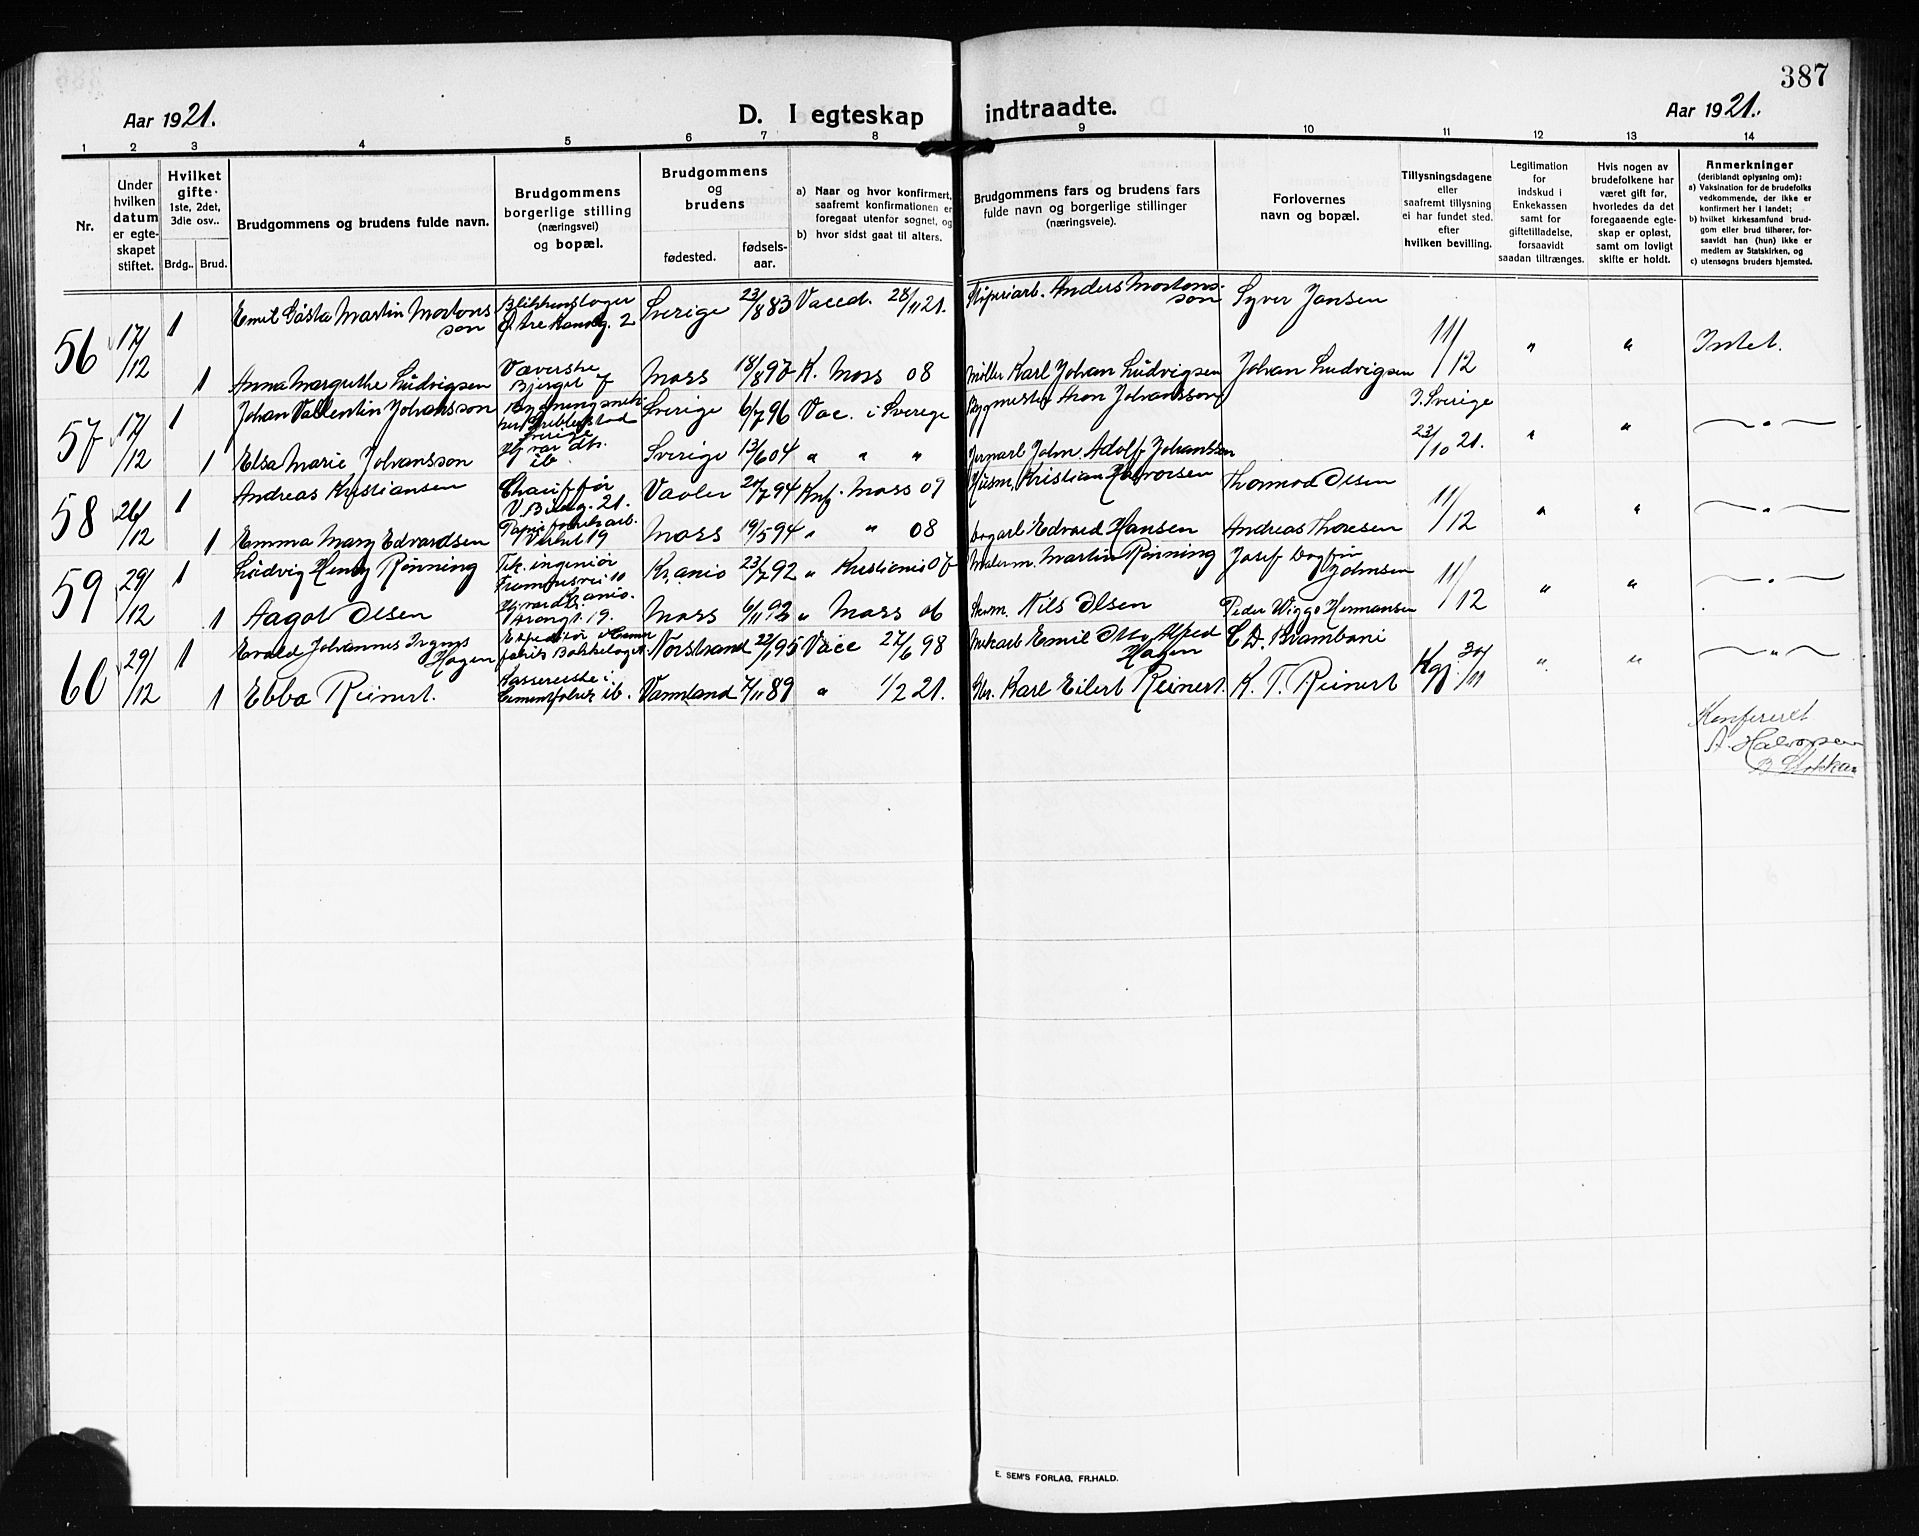 387
Aar 1921.
D. I egteskap indtraadte.
Aar 1921.
1 2 3 4 5 6 7 8 9 10 11 12 13 14
Nr.
Under
hvilken
datum
er egte-
skapet
stiftet.
Hvilket
gifte-
1ste, 2det,
3die osv..
Brdg.. Brud.
Brudgommens og brudens fulde navn.
Brudgommens
borgerlige stilling
(næringsvei)
og bopæl.
Brudgommens
og
brudens
fødested.
fødsels-
aar.
a) Naar og hvor konfirmert,
saafremt konfirmationen er
foregaat utenfor sognet, og
b) hvor sidst gaat til alters.
Brudgommens fars og brudens fars
fulde navn og borgerlige stillinger
(næringsveie).
Forlovernes
navn og bopæl.
Tillysningsdagene
eller
saafremt tillysning
ei har fundet sted.
efter
hvilken bevilling.
Legitimation
for
indskud i
Enkekassen
samt for
giftetilladelse,
forsaavidt
saadan tiltrænges.
Hvis nogen av
brudefolkene har
været gift før,
hvorledes da det
foregaaende egte-
skap er opløst,
samt om lovligt
skifte er holdt.
Anmerkninger
(deriblandt oplysning om):
a) Vaksination for de brudefolks
vedkommende, der ikke er
konfirmert her i landet;
b) hvilket kirkesamfund brud-
gom eller brud tilhører, for-
saavidt han (hun) ikke er
medlem av Statskirken, og
c) utensøgns bruders hjemsted.
56 17/12 1 Emil Gösta Martin Mortons
son Sverige 23/8 83 Vaced. 28/11 21. Anders Mortons-
son Syver Jansen 11/12 " " Intet.
1 Anna Margrethe Ludvigsen Væverske
Bjerget Moss 18/8 90 K. Moss 08 Møller Karl Johan Ludvigsen Johan Ludvigsen
57 17/12 1 Johan Vallentin Johansson Sverige 6/7 96 Vac. i Sverige Bygmester Aron Johansson I Sverige
23/10 21. " " — " —
1 Elsa Marie Johansson Hj.vær. dtr.
ib. Sverige 13/6 04 " " " Jernarb John Adolf Johansson
58 26/12 1 Andreas Kristiansen Chauffør
Vaaler 20/7 94 Knf. Moss 09 Husm. Kristian Halvorsen Thormod Olsen 11/12 " " — " —
1 Emma Mary Edvardsen Papirfabrikarb.
Verket 19 Moss 19/5 94 " " 08 Edvard Hansen Andreas Thoresen
59 29/12 1 Ludvig Henry Rönning ingeniør
Kr.ania 23/7 92 " Kristiania 07 Malerm. Martin Rönning Josef Dagfin
Johnsen 11/12 " " — " —
1 Aagot Olsen Moss 6/11 92 " Moss 06 Nils Olsen Peder Wiggo Hermansen
60 29/12 1 Evald Johannes
Hagen Norstrand 22/1 95 Vacc 27/6 98 Emil Otto Alfred
Hagen 30/11 " " — " —
1 Ebba Reinert. Kassererske i
Cementfabr. ib. 7/11 89 " 1/2 21. Karl Eilert Reinert. K. T. Reinert
Konfereret
A. Halvorsen
E. SEM'S FORLAG, FR.HALD.